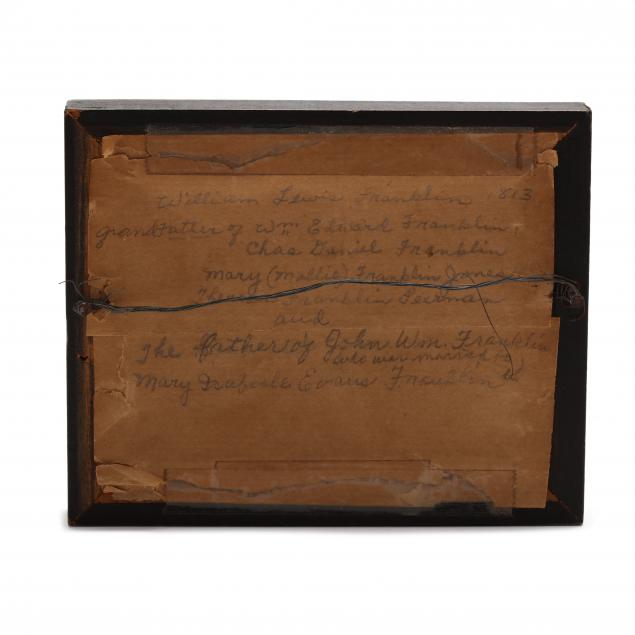 William Lewis Franklin 1813
grandFather of Wm Edward Franklin
Chas Daniel Franklin
Mary (Mollie) Franklin Jones
Franklin Perrman
and
The Father of John Wm. Franklin
(who was married to)
Mary Isabelle Evans Franklin